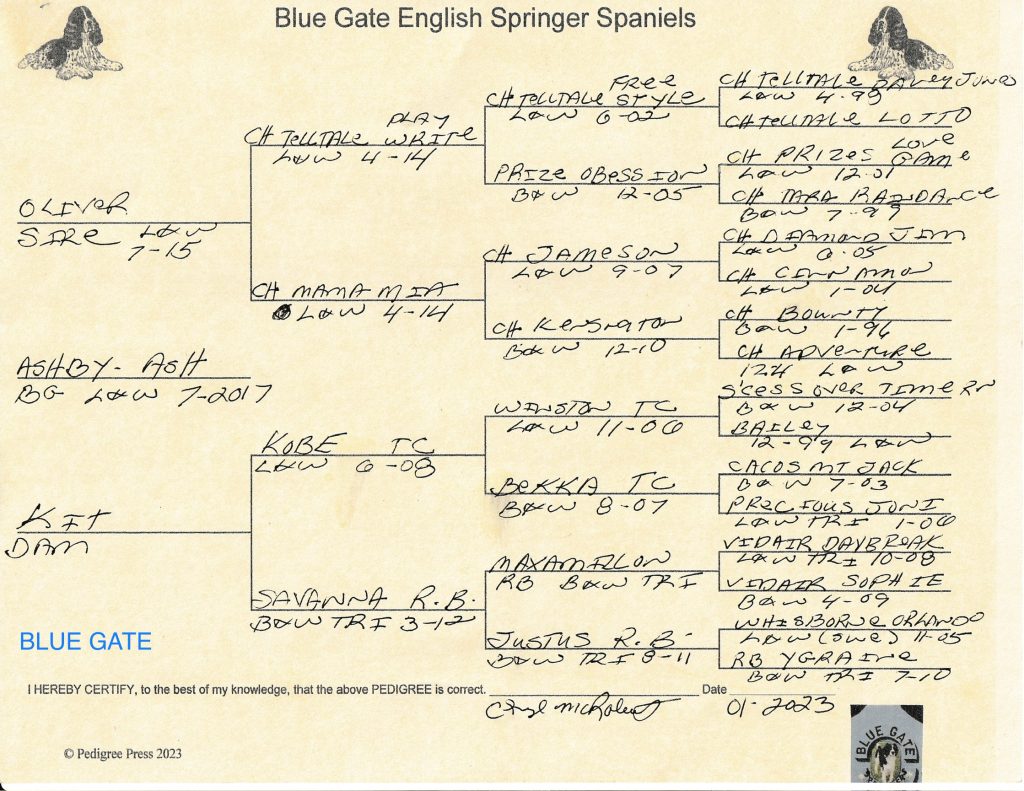 Blue Gate English Springer Spaniels
OLIVER
SIRE L&W
7-15
ASHBY- ASH
BG L&W 7-2017
KIT
DAM
PLAY
CH TELLTALE WRITE
L&W 4-14
CH MAMA MIA
L&W 4-14
KOBE TC
L&W 6-08
SAVANNA R.B.
B&W TRI 3-12
FREE
CH TELLTALE STYLE
L&W 6-02
PRIZE OBESSION
B&W 12-05
CH JAMESON
L&W 9-07
CH KENSINGTON
B&W 12-10
WINSTON TC
L&W 11-06
BEKKA TC
B&W 8-07
MAXAMILLON
RB B&W TRI
JUSTUS R.B.
B&W TRI 8-11
CH TELLTALE
L&W 4-99
CH TELLTALE LOTTO
LOVE
CH PRIZES GAME
L&W 12-01
CH TARA RAINDANCE
B&W 7-97
CH DIAMOND JIM
L&W 6-05
CH CINNAMON
L&W 1-04
CH BOUNTY
B&W 1-96
CH ADVENTURE
L&W
S'CESS OVER TIME RN
B&W 12-04
BAILEY
12-99 L&W
CACOS MT JACK
B&W 7-03
PRECIOUS JONI
L&W TRI 1-06
VIDAIR DAYBROAK
L&W TRI 10-08
VIDAIR SOPHIE
B&W 4-09
WHISBORNE ORLANDO
L&W (SWE) 11-05
RB YGRAINE
B&W TRI 7-10
BLUE GATE
I HEREBY CERTIFY, to the best of my knowledge, that the above PEDIGREE is correct. Date
01-2023
© Pedigree Press 2023
BLUE GATE